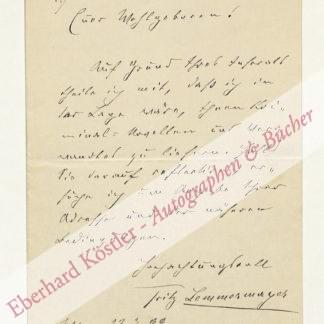 Euer Wohlgeboren!
Auf Grund Ihres Inserats
theile ich mit, daß ich in
der Lage wäre, Ihnen Kri-
minal-Novellen und Ver-
wandtes zu liefern.
Sie darauf
suche ich um Ihrer
Adresse und der näheren
Bedingungen.
Hochachtungsvoll
Fritz Lemmermayer
Eberhard Köstler - Autographen & Bücher